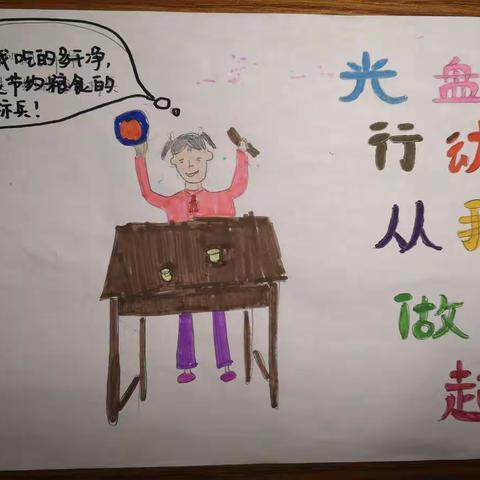 我吃的多干净,
是节约粮食的
标兵!
光盘
行动
从我
做
起